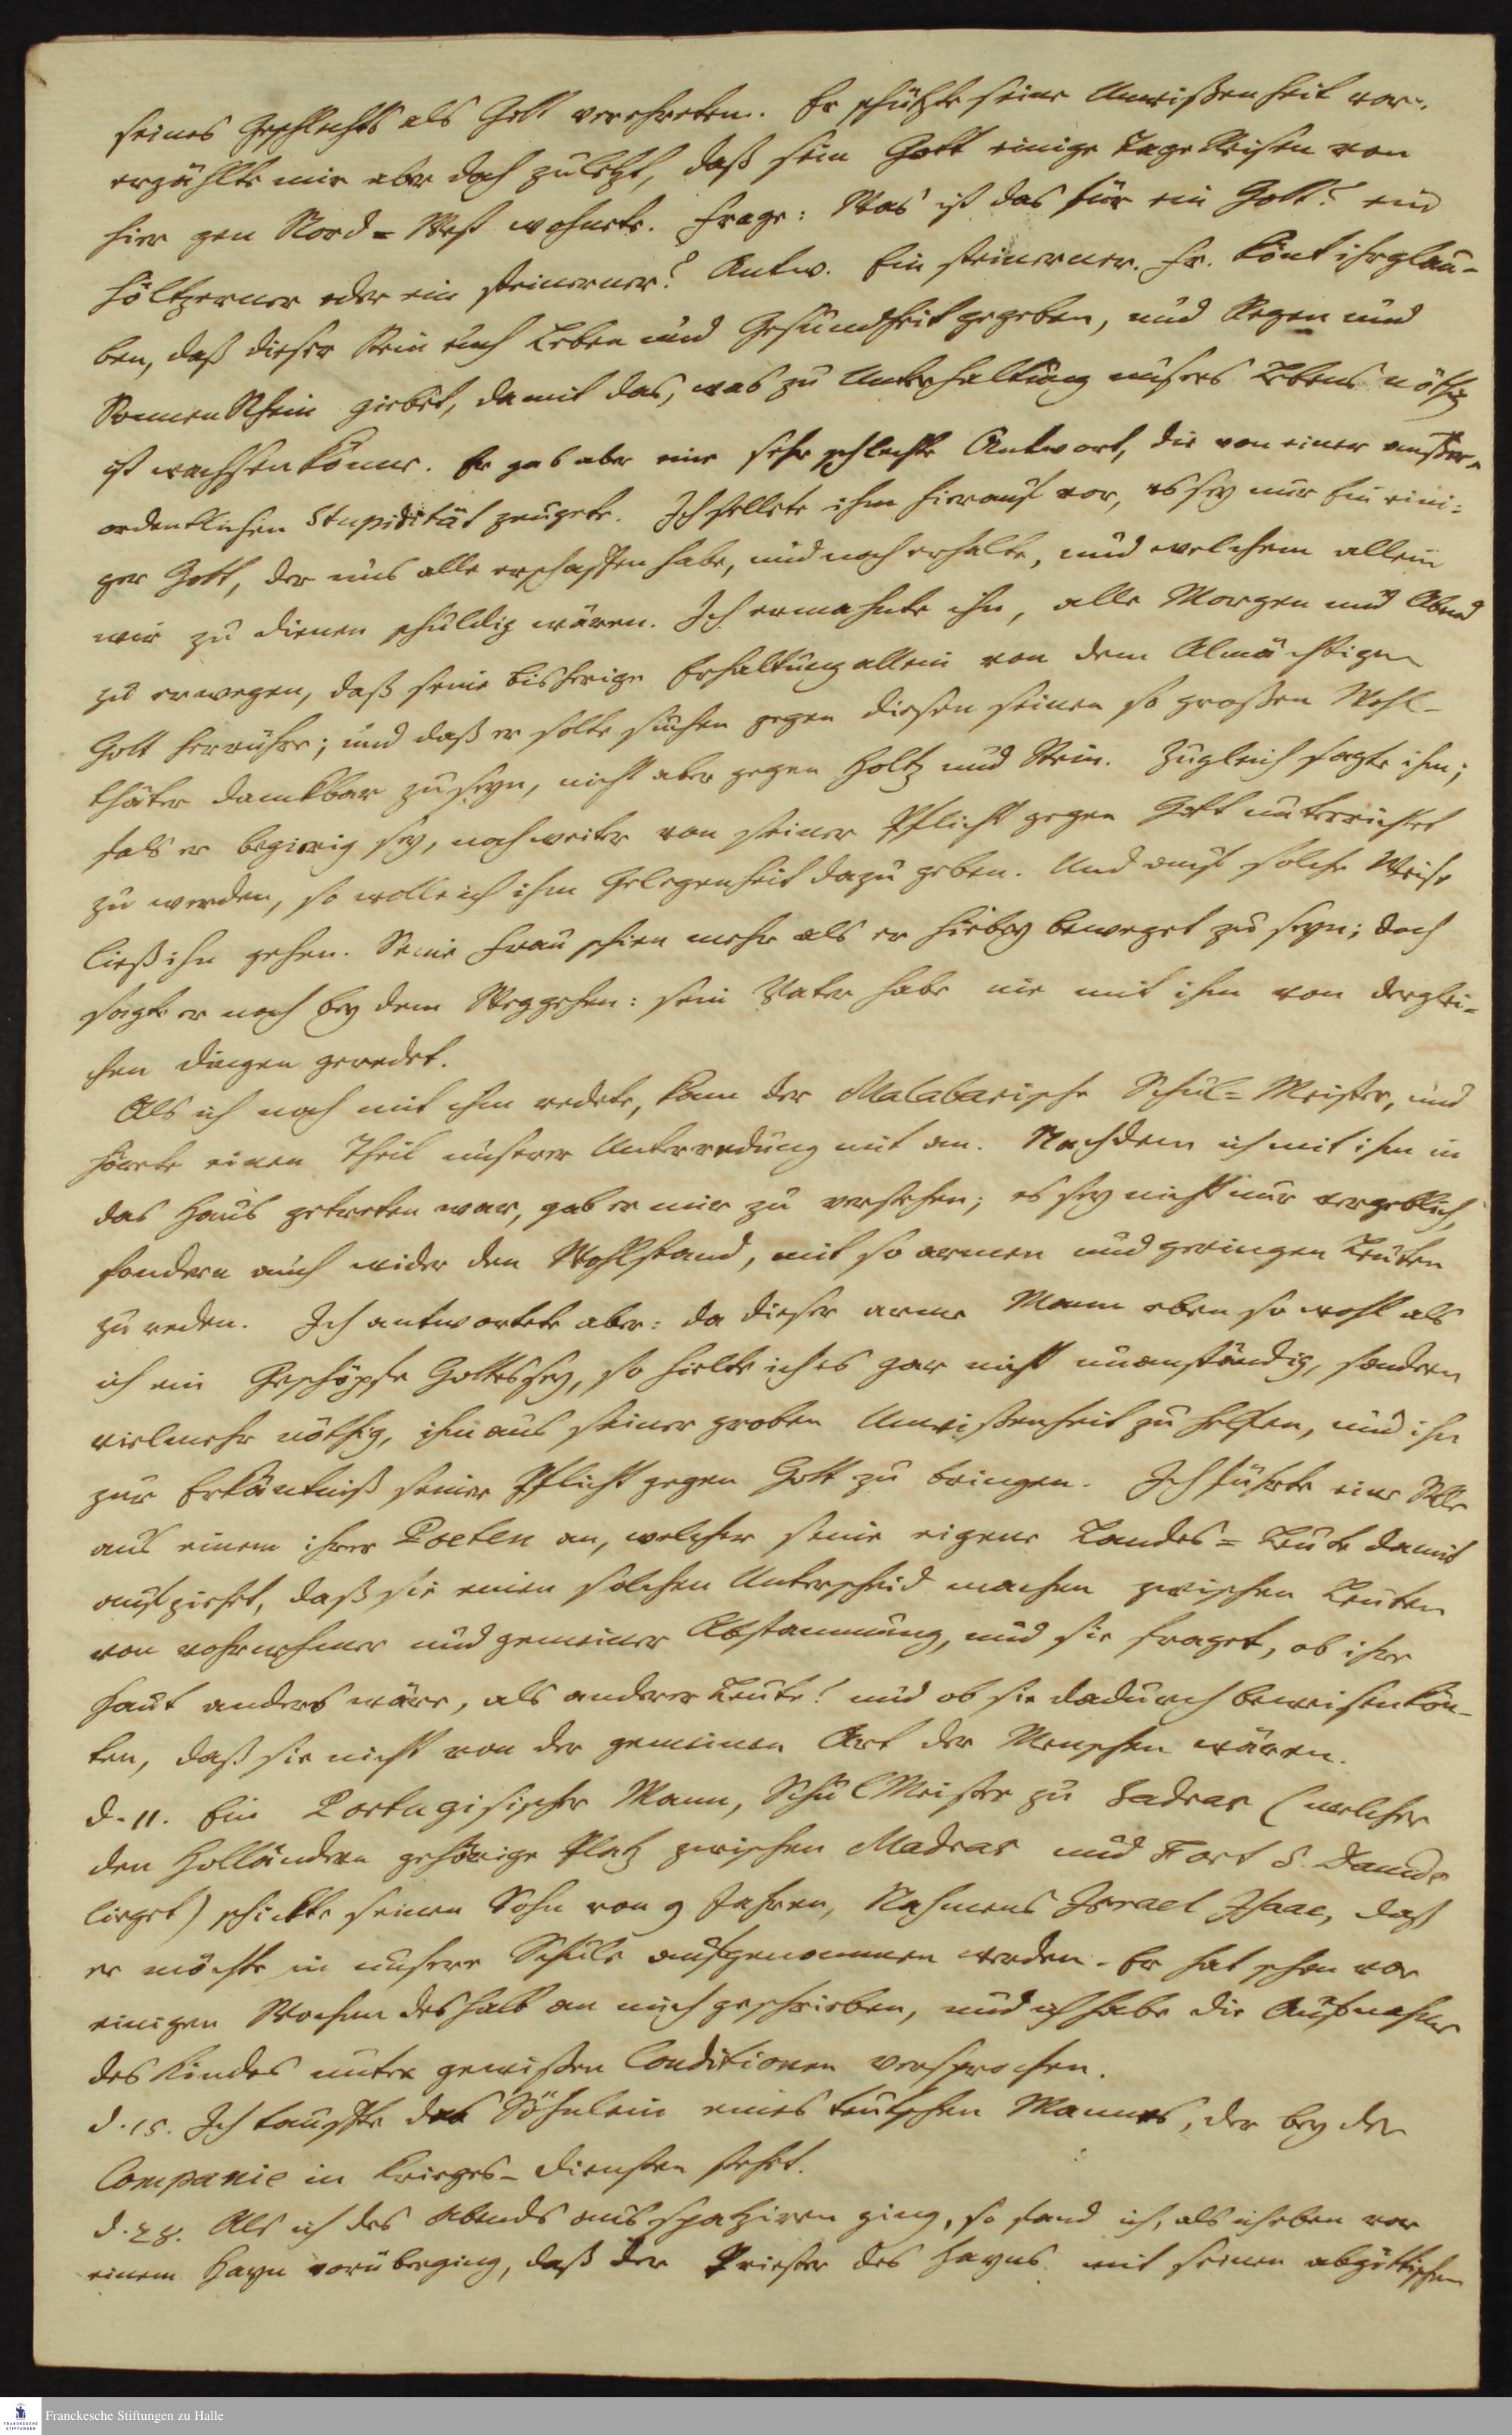 seines Geschlechts als Gott verehreten. Er schützte seine Unwißenheit vor,
erzählte mir aber doch zuletzt, daß sein Gott einige Tage Reisen von
hier gen Nord-West wohnete. Frage: Was ist das für ein Gott? ein
höltzerner oder ein steinerner? Antw. Ein steinerner. Fr. Könt ihr glau-
ben, daß dieser Stein euch Leben und Gesundheit gegeben, und Regen und
Sonnen Schein giebet, damit das, was zu Unterhaltung unsers Lebens nöthig
ist wachsen könne. Er gab aber eine sehr schlechte Antwort, die von einer außer-
ordentlichen Stupidität zeugete. Ich stellete ihm hierauf vor, es sey nur Ein eini-
ger Gott, der uns alle erschaffen habe, und noch erhalte, und welchem allein
wir zu dienen schuldig wären. Ich ermahnte ihn, alle Morgen und Abend
zu erwegen, daß seine bisherige Erhaltung allein von dem Almächtigen
Gott herrühre; und daß er solte suchen gegen diesen seinen so großen Wohl-
thäter danckbar zu seyn, nicht aber gegen Holtz und Stein. Zugleich sagte ihm;
fals er begierig sey, noch weiter von seiner Pflicht gegen Gott unterrichtet
zu werden, so wolle ich ihm Gelegenheit dazu geben. Und auf solche Weise
ließ ihn gehen. Seine Frau schien mehr als er hiebey beweget zu seyn; doch
sagte er noch bey dem Weggehen: sein Vater habe nie mit ihm von derglei-
chen Dingen geredet.
Als ich noch mit ihm redete, kam der Malabarische Schul-Meister, und
hörete einen Theil unserer Unterredung mit an. Nachdem ich mit ihm in
das Haus getreten war, gab er mir zu verstehen; es sey nicht nur vergeblich,
sondern auch wider den Wohlstand, mit so armen und geringen Leuten
zu reden. Ich antwortete aber: da dieser arme Mann eben so wohl als
ich ein Geschöpfe Gottes sey, so hielte ich es gar nicht unanständig, sondern
vielmehr nöthig, ihn aus seiner groben Unwißenheit zu helfen, und ihn
zur Erkäntniß seiner Pflicht gegen Gott zu bringen. Ich führte eine Stelle
aus einem ihrer Poeten an, welcher seine eigene Landes-Leute damit
aufziehet, daß sie einen solchen Unterscheid machen zwischen Leuten
von vornehmer und gemeiner Abstammung, und sie fraget, ob ihre
Haut anders wäre, als anderer Leute? und ob sie dadurch beweisen kön-
ten, daß sie nicht von der gemeinen Art der Menschen wären.
d. 11. Ein Portugisischer Mann, SchulMeister zu Sadras (welcher
den Holländern gehörige Platz zwischen Madras und Fort S. Davids
lieget) schickte seinen Sohn von 9 Jahren, Nahmens Israel Isaac, daß
er möchte in unsere Schule aufgenommen werden. Er hat schon vor
einigen Wochen deshalb an mich geschrieben, und ich habe die Aufnahme
des Kindes unter gewißen Conditionen versprochen.
d. 15. Ich taufte das Söhnlein eines teutschen Mannes, der bey der
Companie in Krieges-Diensten stehet.
d. 28. Als ich des Abends aus spatziren ging, so fand ich, als ich eben vor
einem Hayn vorüberging, daß der Priester des Hayns mit seinen abgöttischen
Franckesche Stiftungen zu Halle